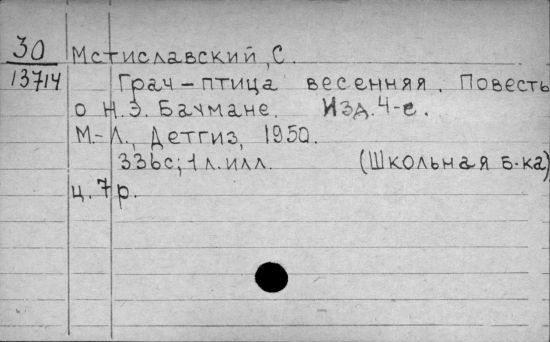 30 Мстиславский, С.
13714 Грач-птица весенняя. Повесть
о Н.Э. Баумане. Изд. 4-е.
М.-Л., Детгиз, 1950.
336с; 1 л. илл. (Школьная б-ка)
ц. 7 р.